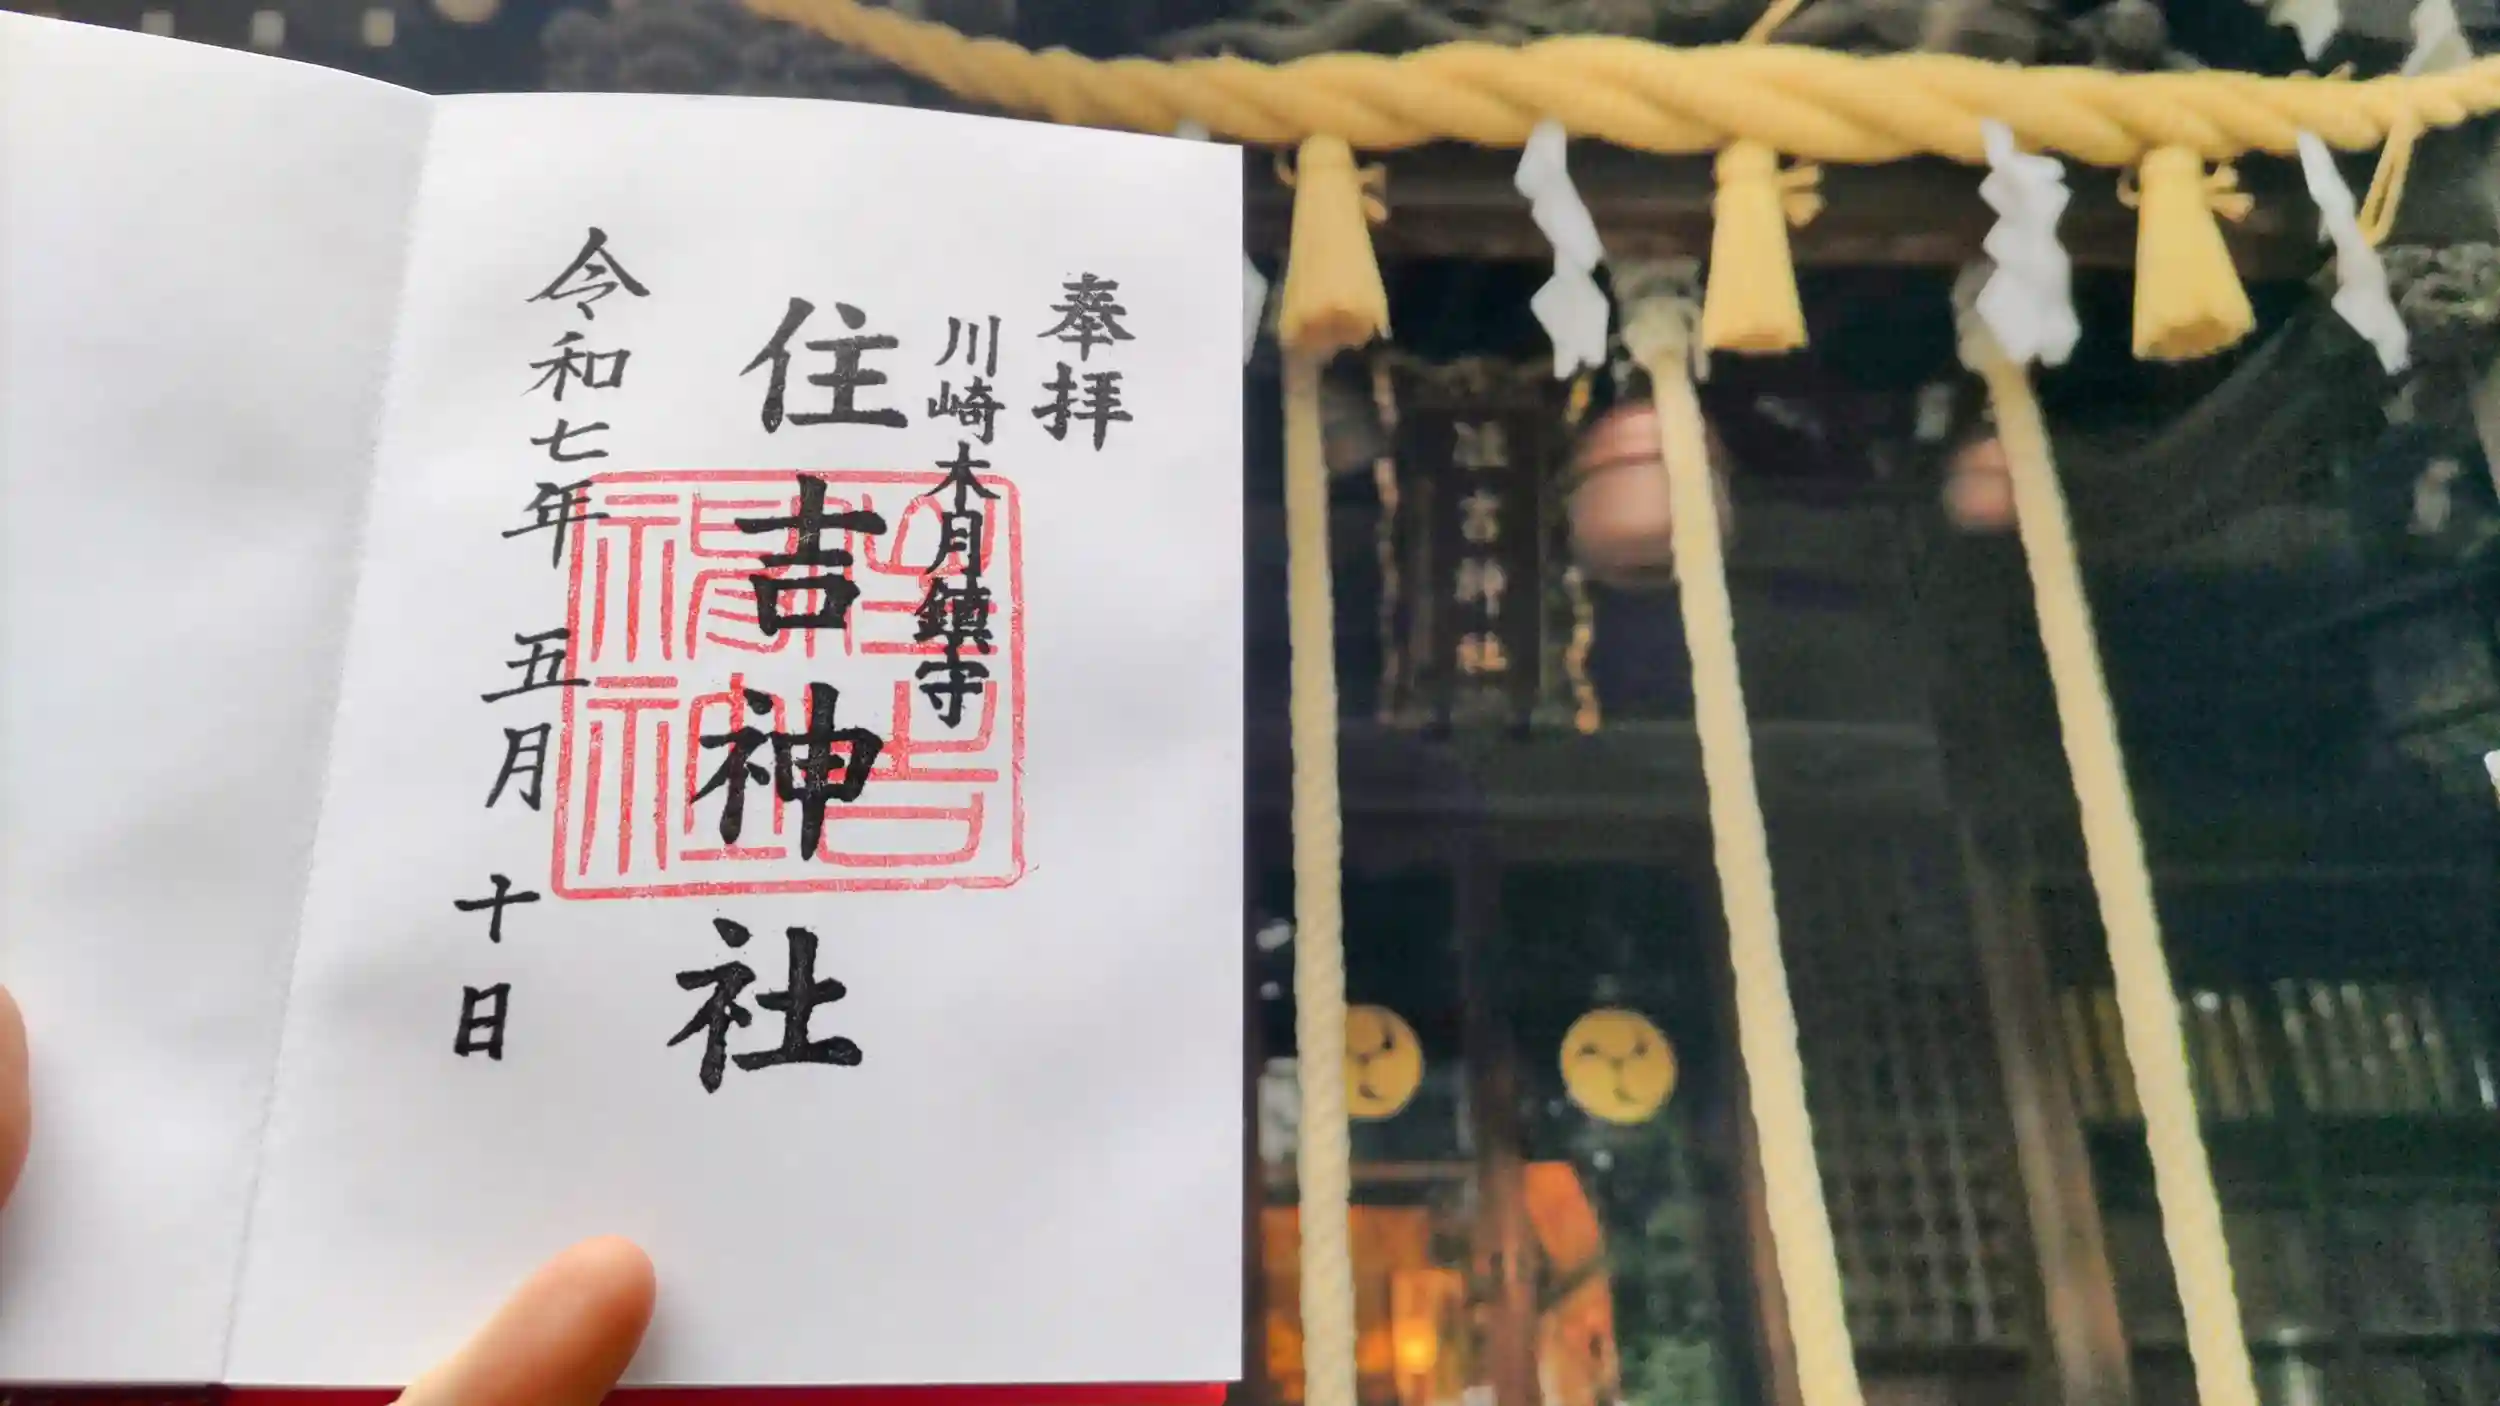 奉拝
川崎木月鎮守
住吉神社
令和七年 五月 十日
住吉神社